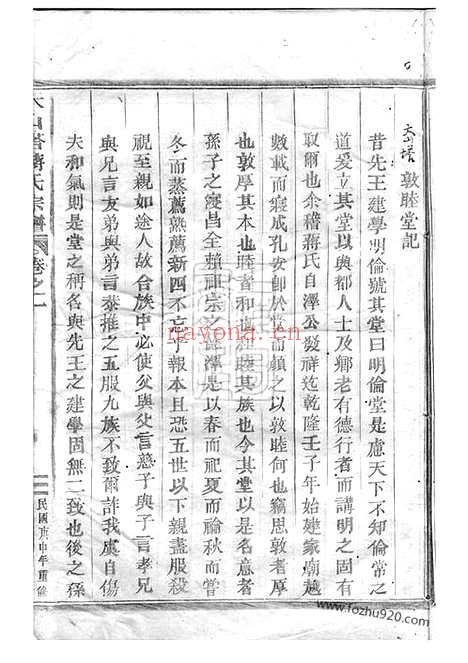 大山塔敦睦堂記
昔先王建學明倫號其堂曰明倫堂是慮天下不知倫常之
道爰立其堂以與都人士及鄉老有德行者而講明之固有
取爾也余稽蔣氏自澤公發祥迄乾隆壬子年始建家廟越
數載而寢成孔安卽於堂而顏之以敦睦何也竊思敦者厚
也敦厚其本也睦者和也 睦其族也今其堂以是名意者
孫子之寖昌全賴祖宗之 澤是以春而祀夏而禴秋而嘗
冬而蒸薦熟薦新四不忘乎報本且恐五世以下親盡服殺
視至親如途人故合族中必使父與父言慈子與子言孝兄
與兄言友弟與弟言恭雍之五服九族不致爾詐我虞自傷
夫和氣則是堂之稱名與先王之建學固無二致也後之孫
蔣氏宗譜
卷之二
民國庚申年重修
nayona.cn
www.fozhu920.com